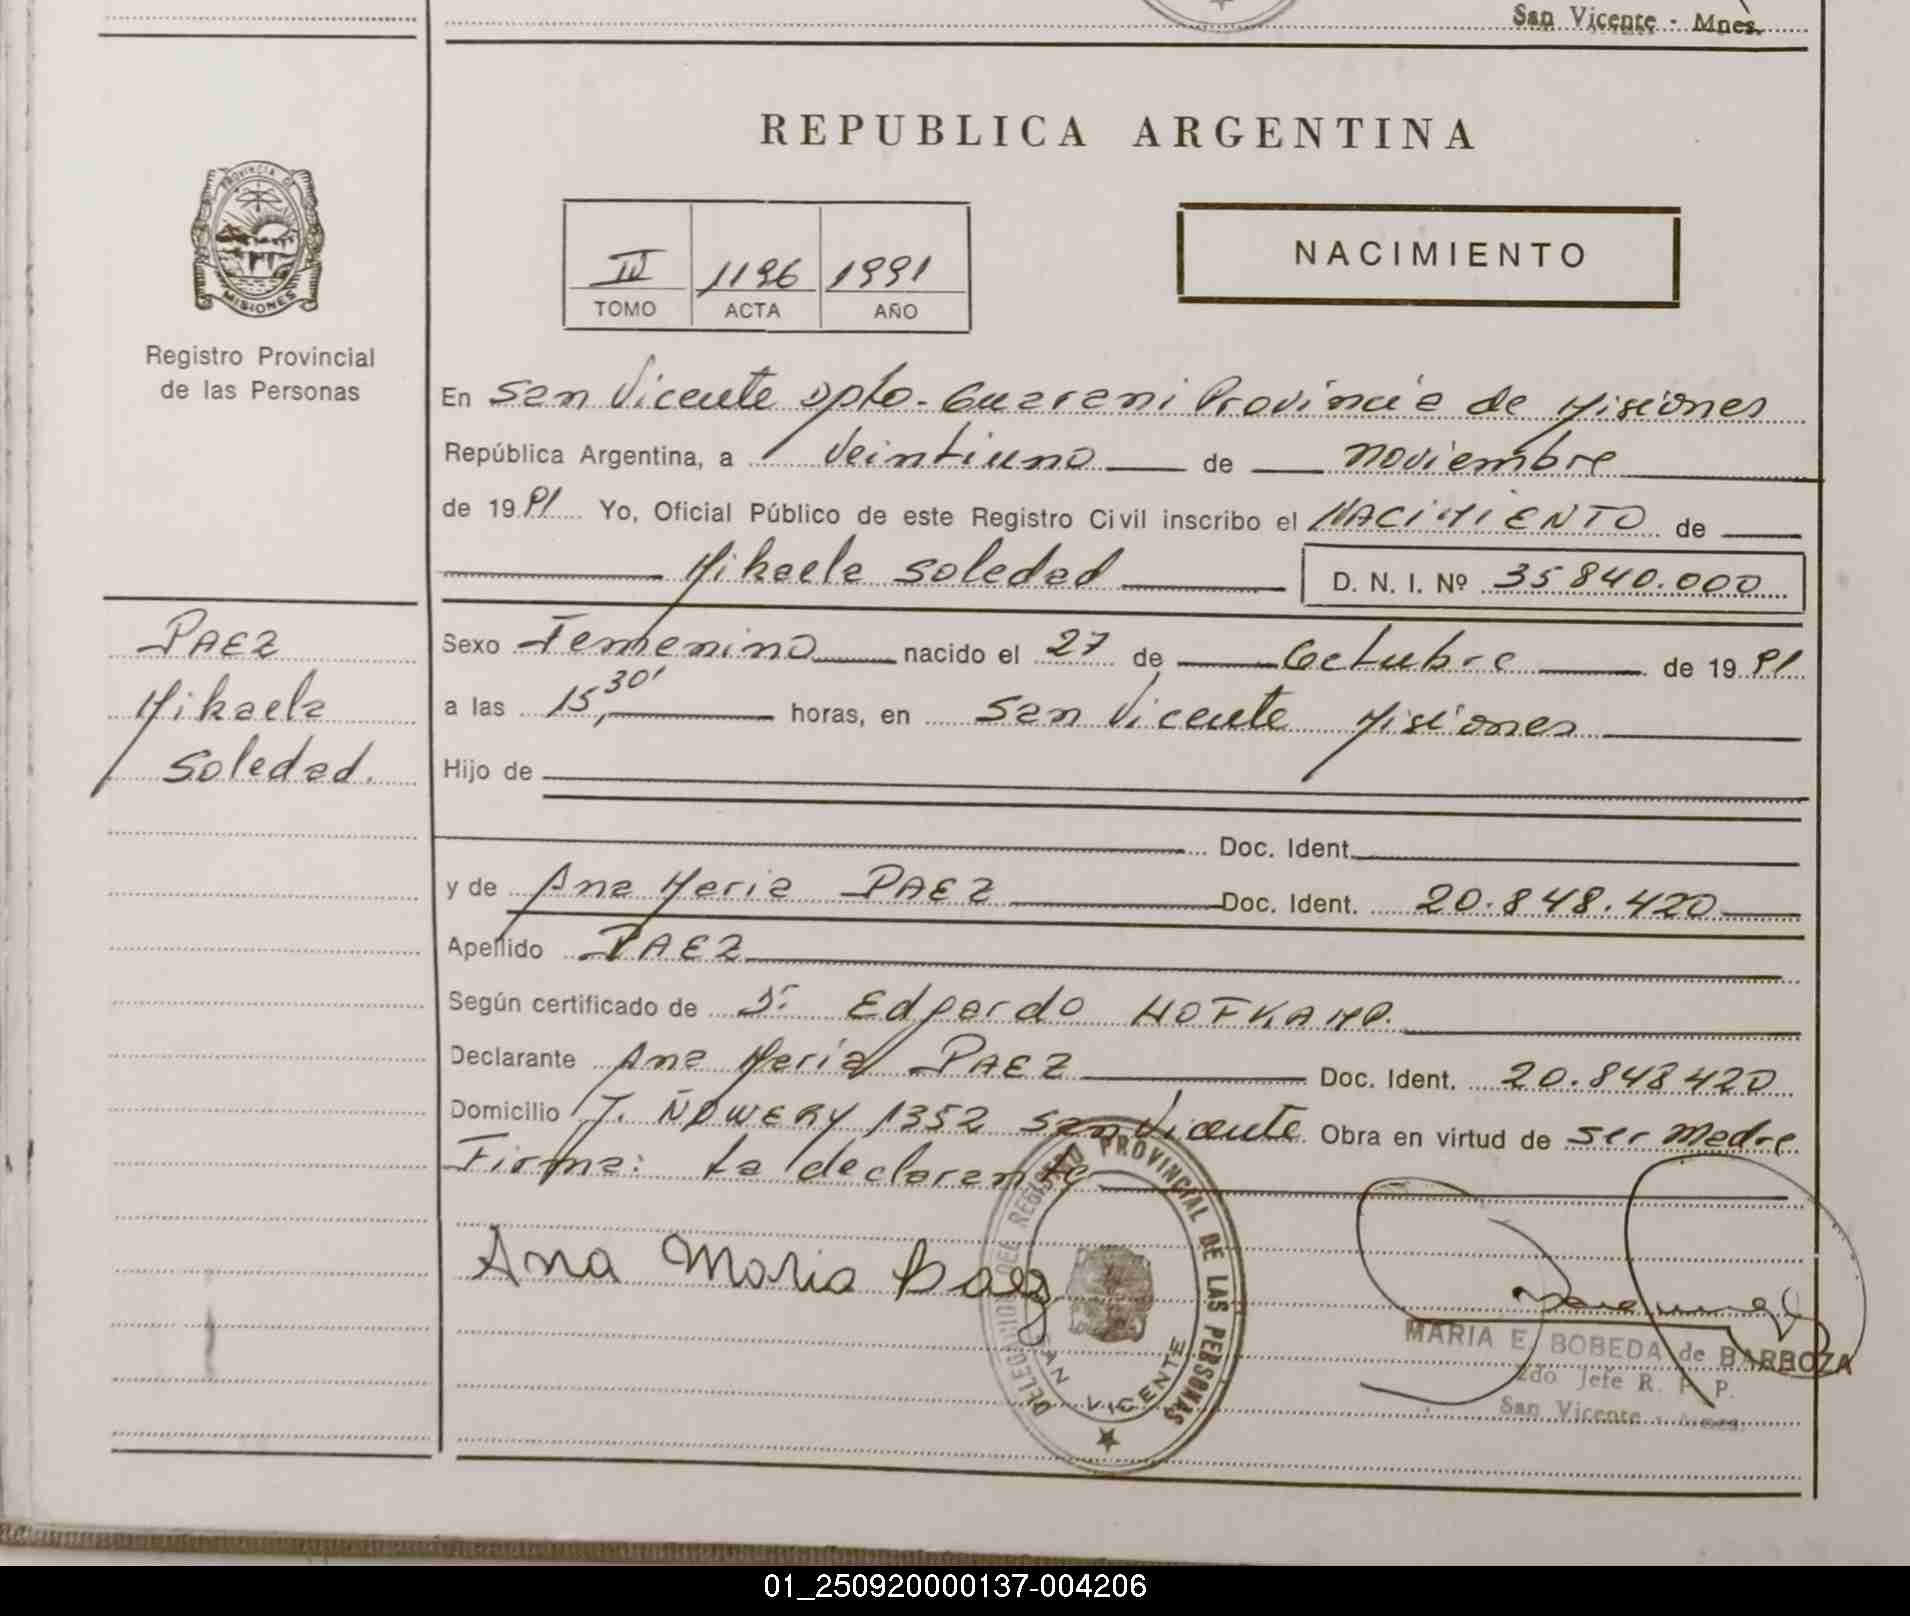 San Vicente - Mnes.
REPUBLICA ARGENTINA
PROVINCIA DE
MISIONES
Registro Provincial
de las Personas
NACIMIENTO
1196 1991
TOMO ACTA AÑO
En San Vicente Dpto. Guarani Provincia de Misiones
República Argentina, a veintiuno de noviembre
de 1991 Yo, Oficial Público de este Registro Civil inscribo el NACIMIENTO de
Mikaela Soledad D. N. I. Nº 35840.000
PAEZ
Mikaela
Soledad.
Sexo Femenino nacido el 27 de Octubre de 1991
a las 15,30' horas, en San Vicente Misiones
Hijo de
Doc. Ident.
y de Ana Maria PAEZ Doc. Ident. 20.848.420
Apellido PAEZ
Según certificado de Dr Edgardo HOFKAMP.
Declarante Ana Maria PAEZ Doc. Ident. 20.848420
Domicilio J. 1352 San Vicente. Obra en virtud de ser madre
Firma: La declarante
Ana Maria Paez
DELEGACION DEL REGISTRO PROVINCIAL DE LAS PERSONAS
SAN VICENTE
MARIA E. BOBEDA de BARBOZA
2do Jefe R. P. P.
San Vicente - Mnes.
01_250920000137-004206